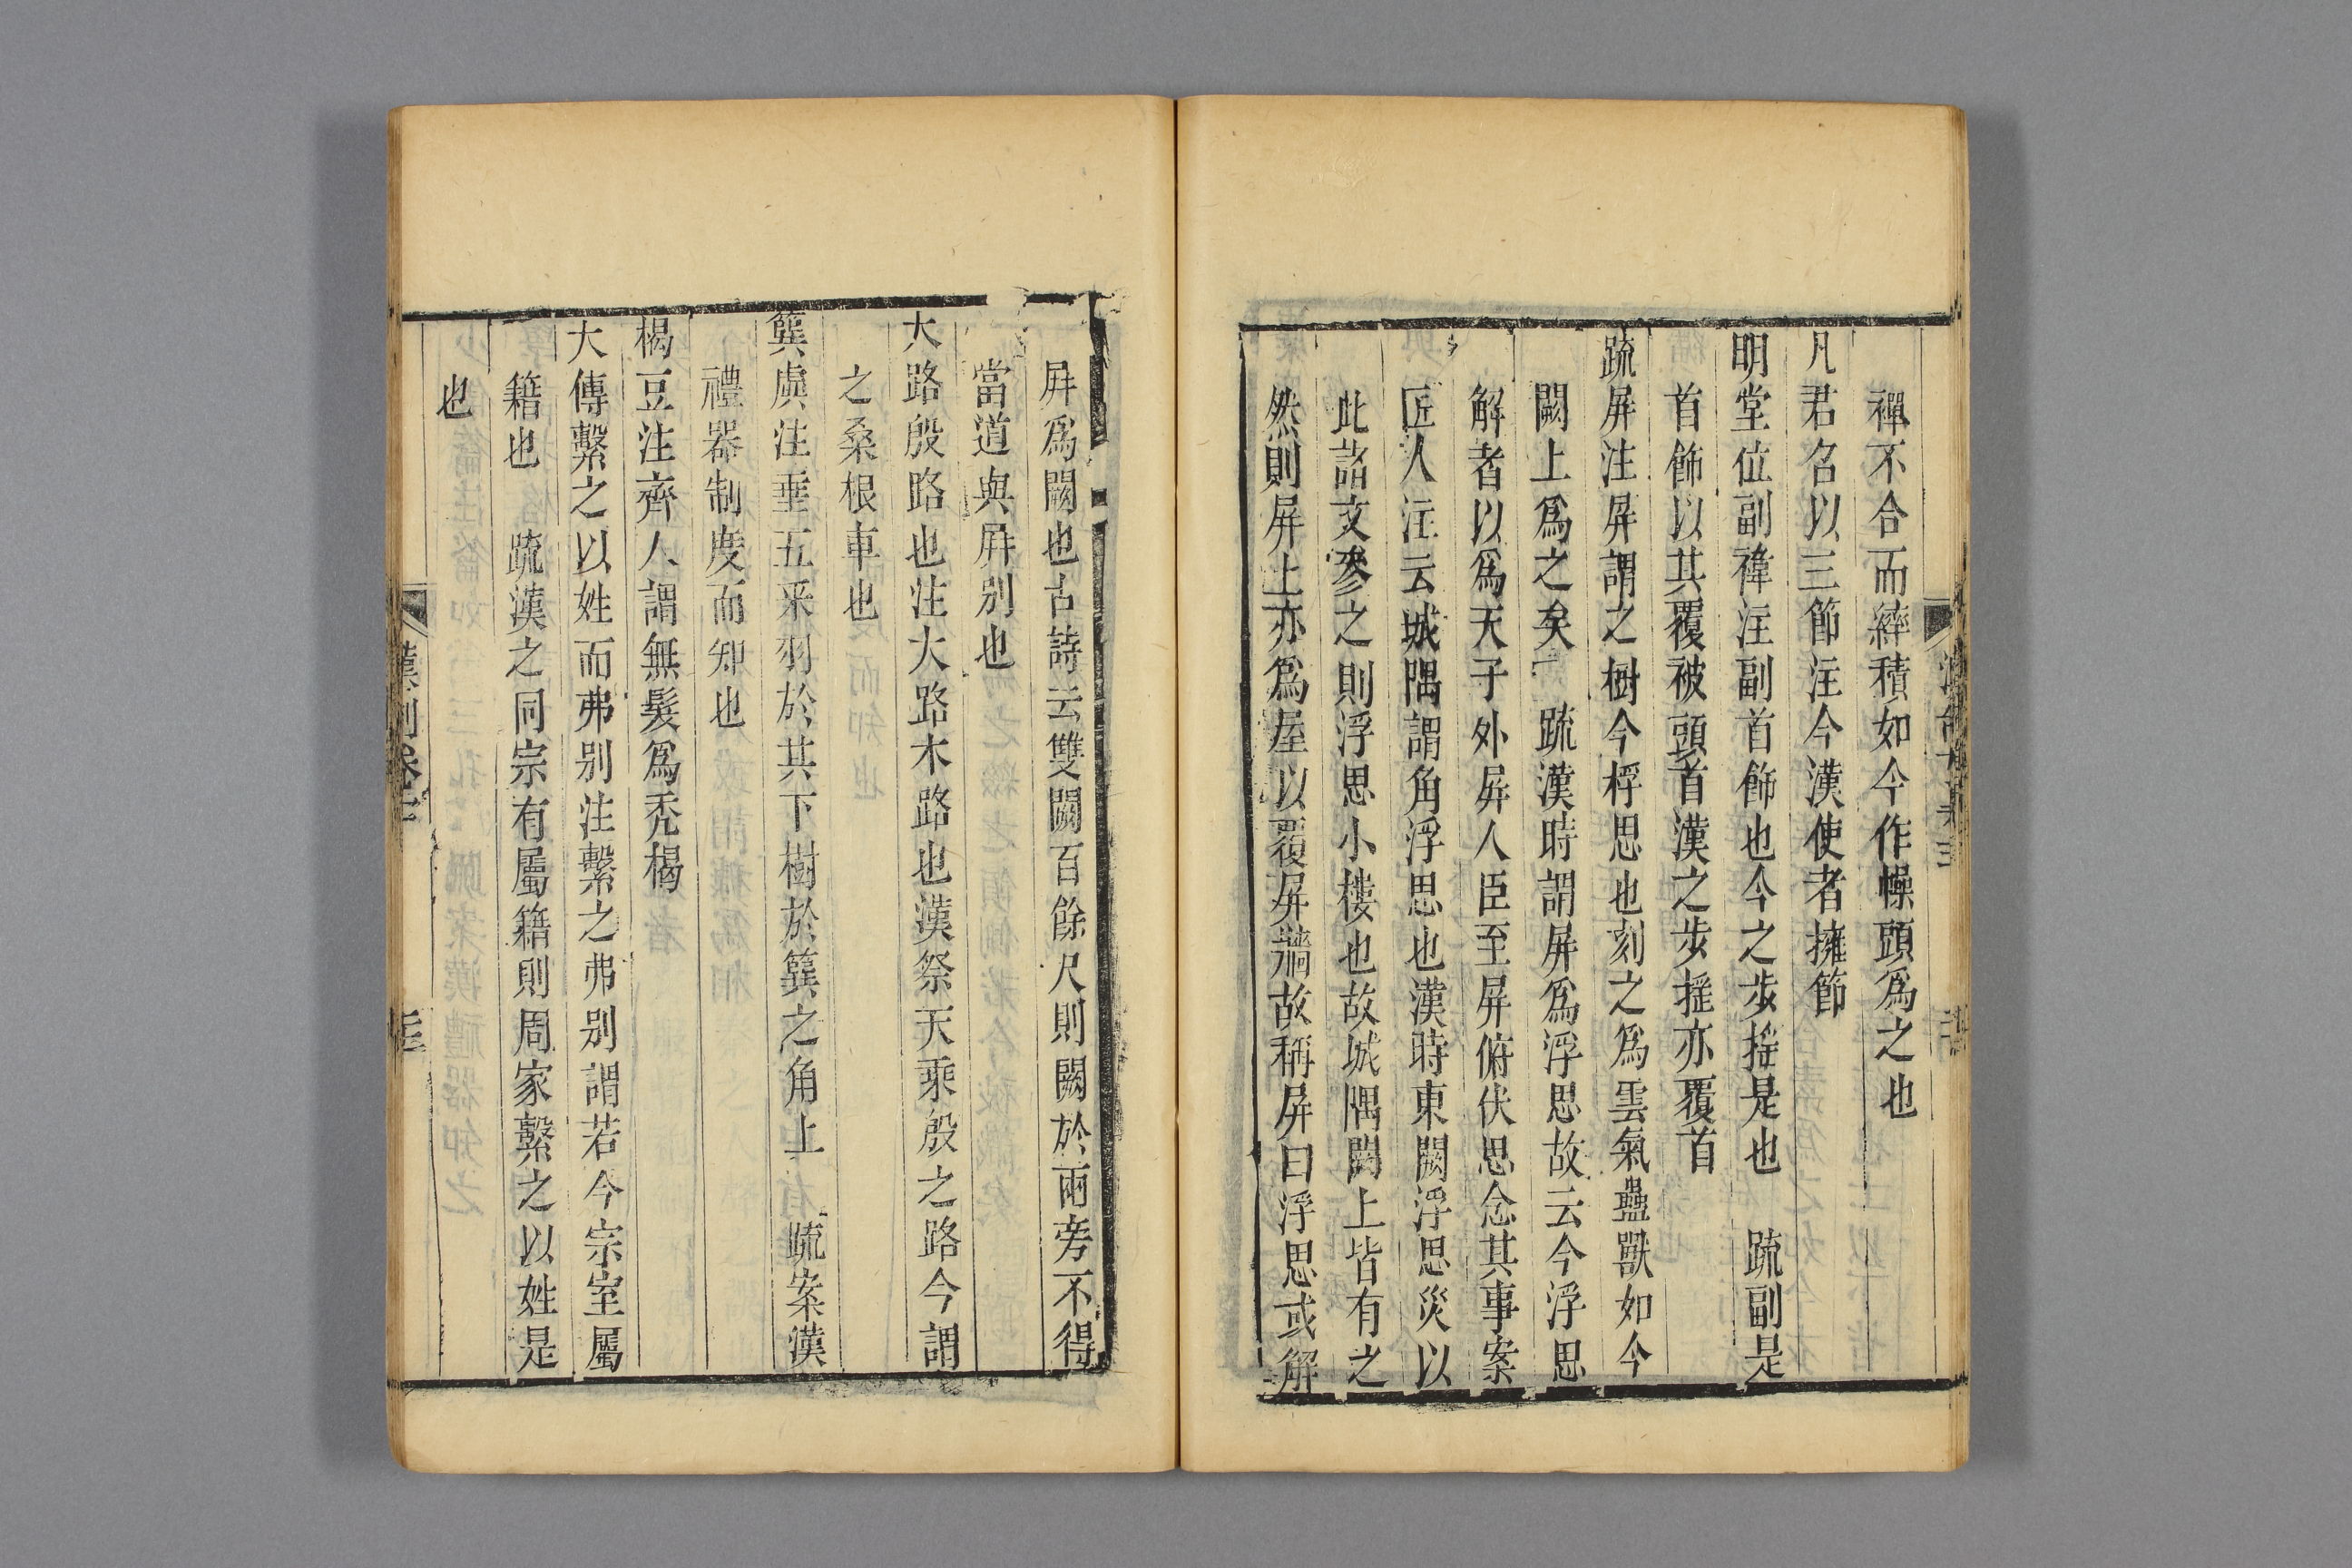 襌不合而繂積如今作幧頭爲之也
凡君名以三節注今漢使者擁節
明堂位副褘注副首飾也今之步揺是也　疏副是
首飾以其覆被頭首漢之步揺亦覆首
疏屏注屏謂之樹今桴思也刻之爲雲氣蟲獸如今
闕上爲之矣　疏漢時謂屏爲浮思故云今浮思
解者以爲天子外屏人臣至屏俯伏思念其事案
匠人注云城隅謂角浮思也漢時東闕浮思災以
此諸文參之則浮思小樓也故城隅闕上皆有之
然則屏上亦爲屋以覆屏牆故稱屏曰浮思或解
屏爲闕也古詩云雙闕百餘尺則闕於兩旁不得
當道與屏別也
大路殷路也注大路木路也漢祭天乘殷之路今謂
之桑根車也
簨虡注垂五采羽於其下樹於簨之角上　疏案漢
禮器制度而知也
楬豆注齊人謂無髮爲禿楬
大傳繫之以姓而弗别注繫之弗别謂若今宗室屬
籍也　疏漢之同宗有屬籍則周家繫之以姓是
也
漢制卷